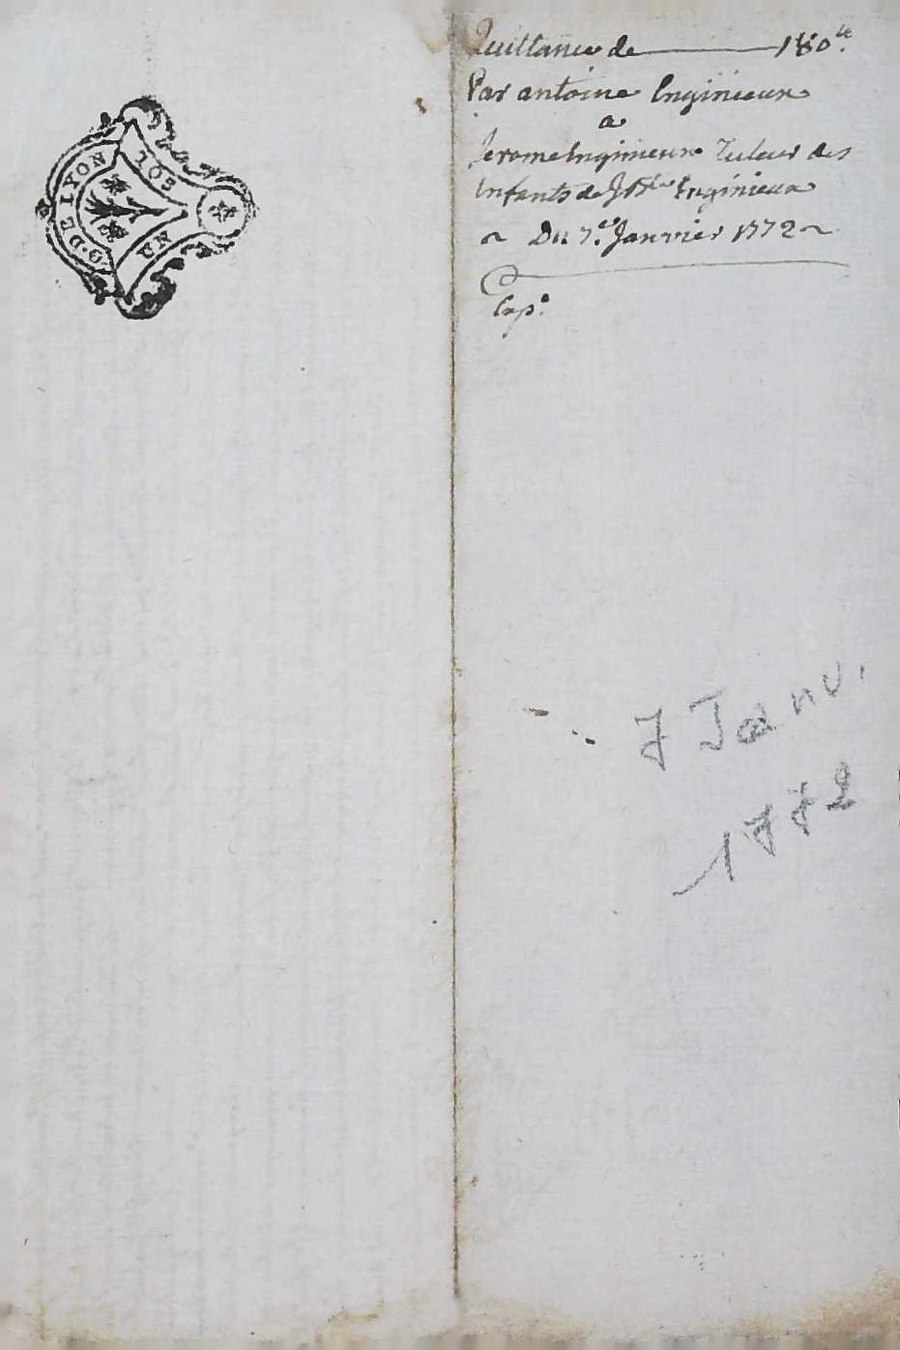 G. DE LYON
UN SOL
Quittance de 180 ᵗᵗ
Par antoine Enginieux
a
Jerome Enginieux Tuteur des
Enfants de Enginieux
Du 7.e Janvier 1772
Exp.e
7 Janv.
1772